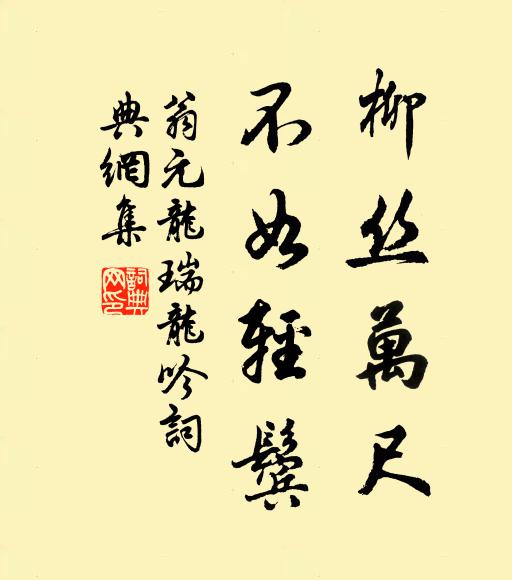 柳丝萬尺
不如輕鬓
翁元龍瑞龍吟詞
典網集
詞典網印